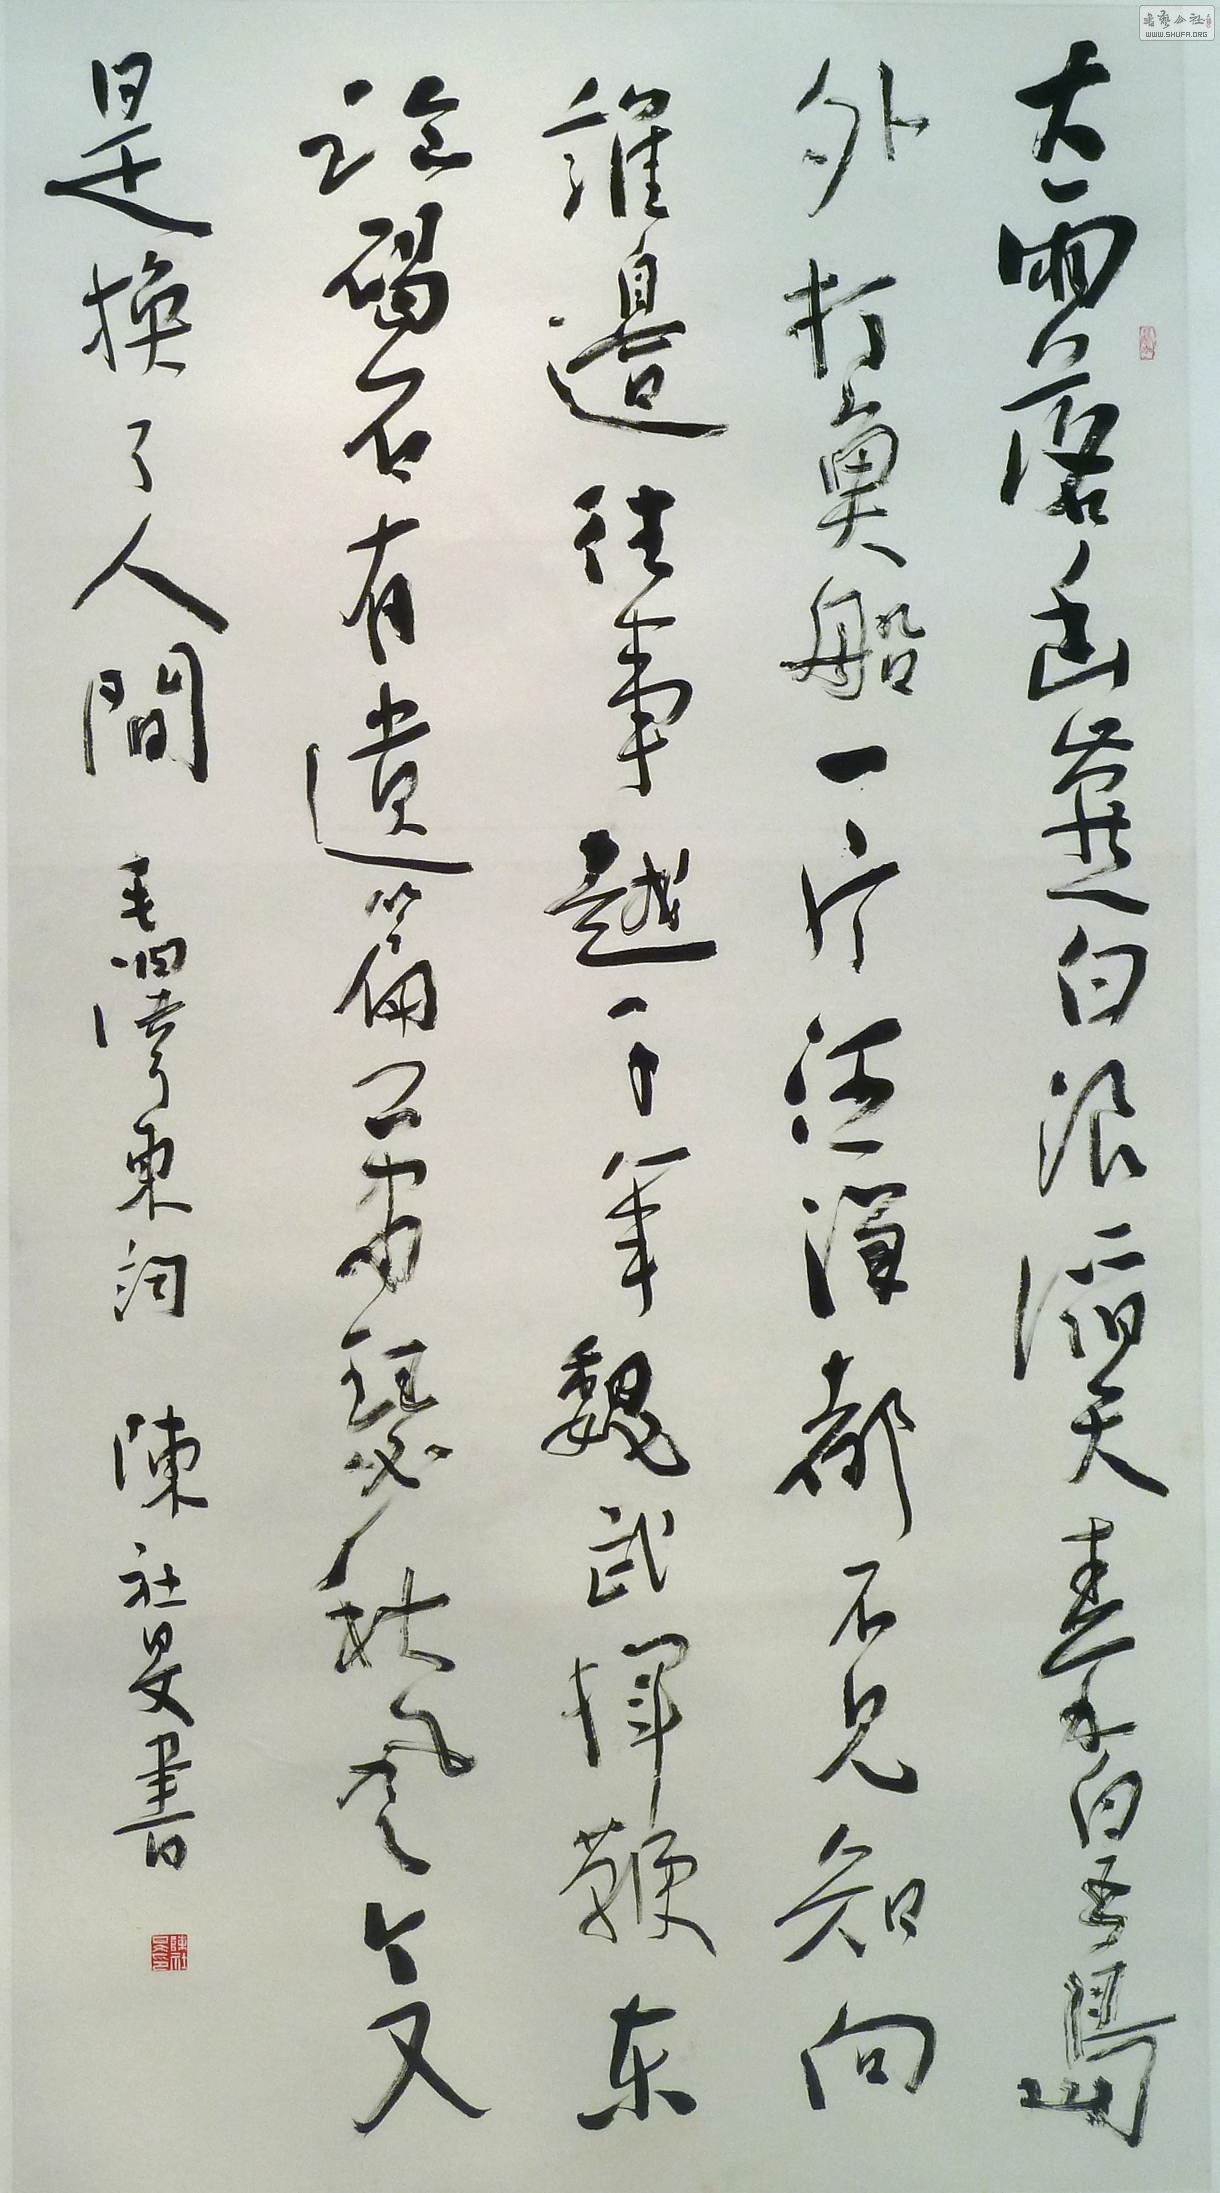 大雨落幽燕白浪滔天秦皇島
外打魚船一片汪洋都不見知向
誰邊往事越千年魏武揮鞭东
臨碣石有遺篇蕭瑟秋風今又
是換了人間 毛澤東詞 陳社旻書
陳社旻印
書藝公社
WWW.SHUFA.ORG